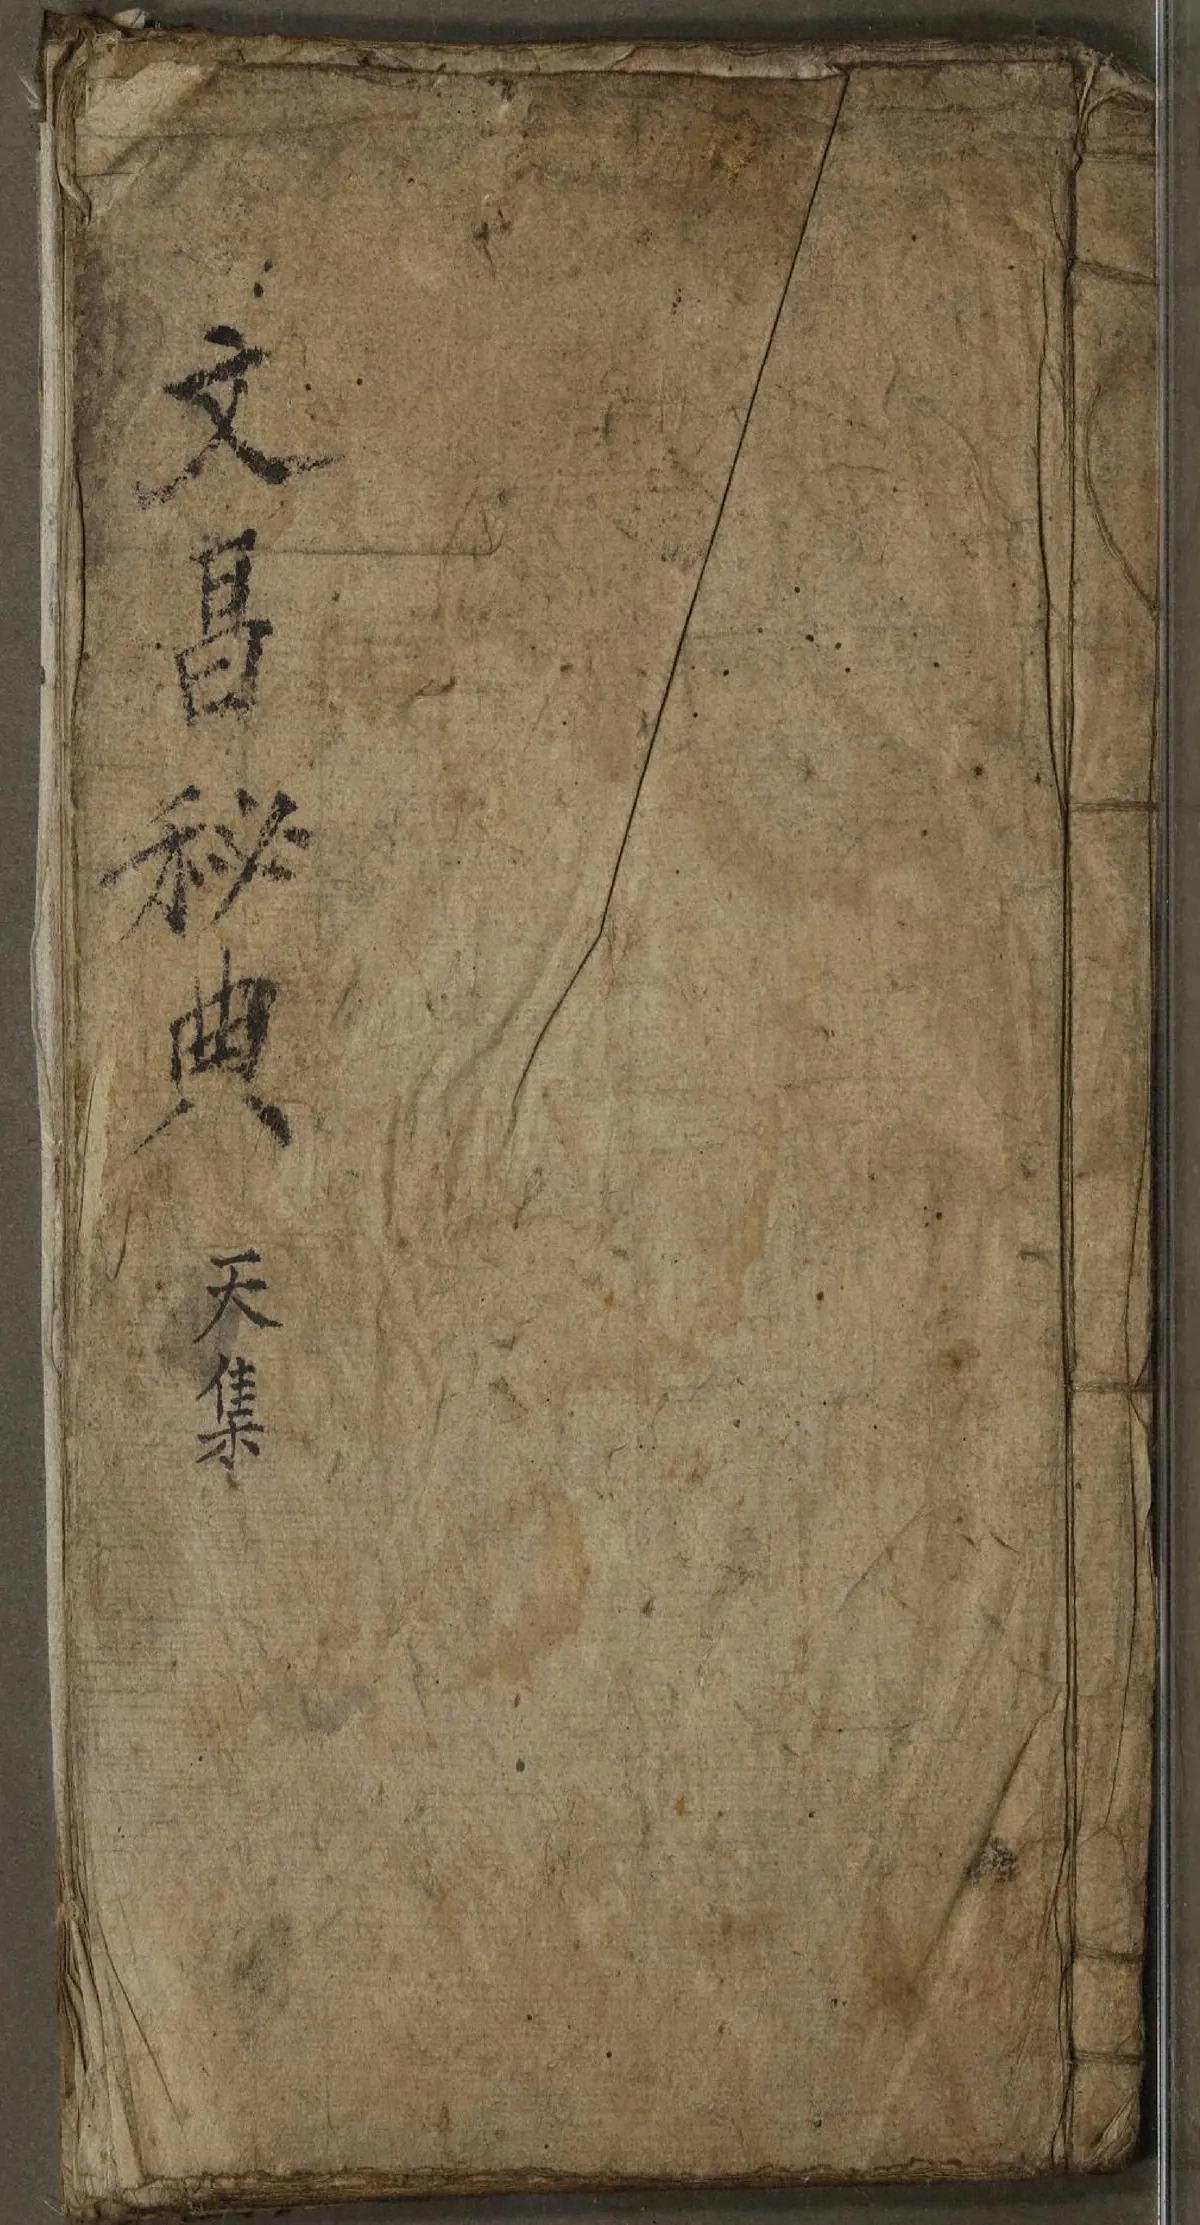 文昌秘典
天集